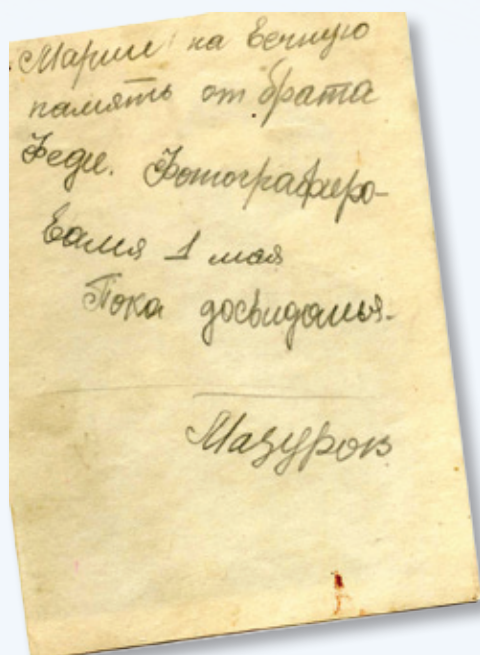 Марии на вечную
память от брата
Феди. Фотографиро-
вался 1 мая
Пока досвиданья.
Мазуров